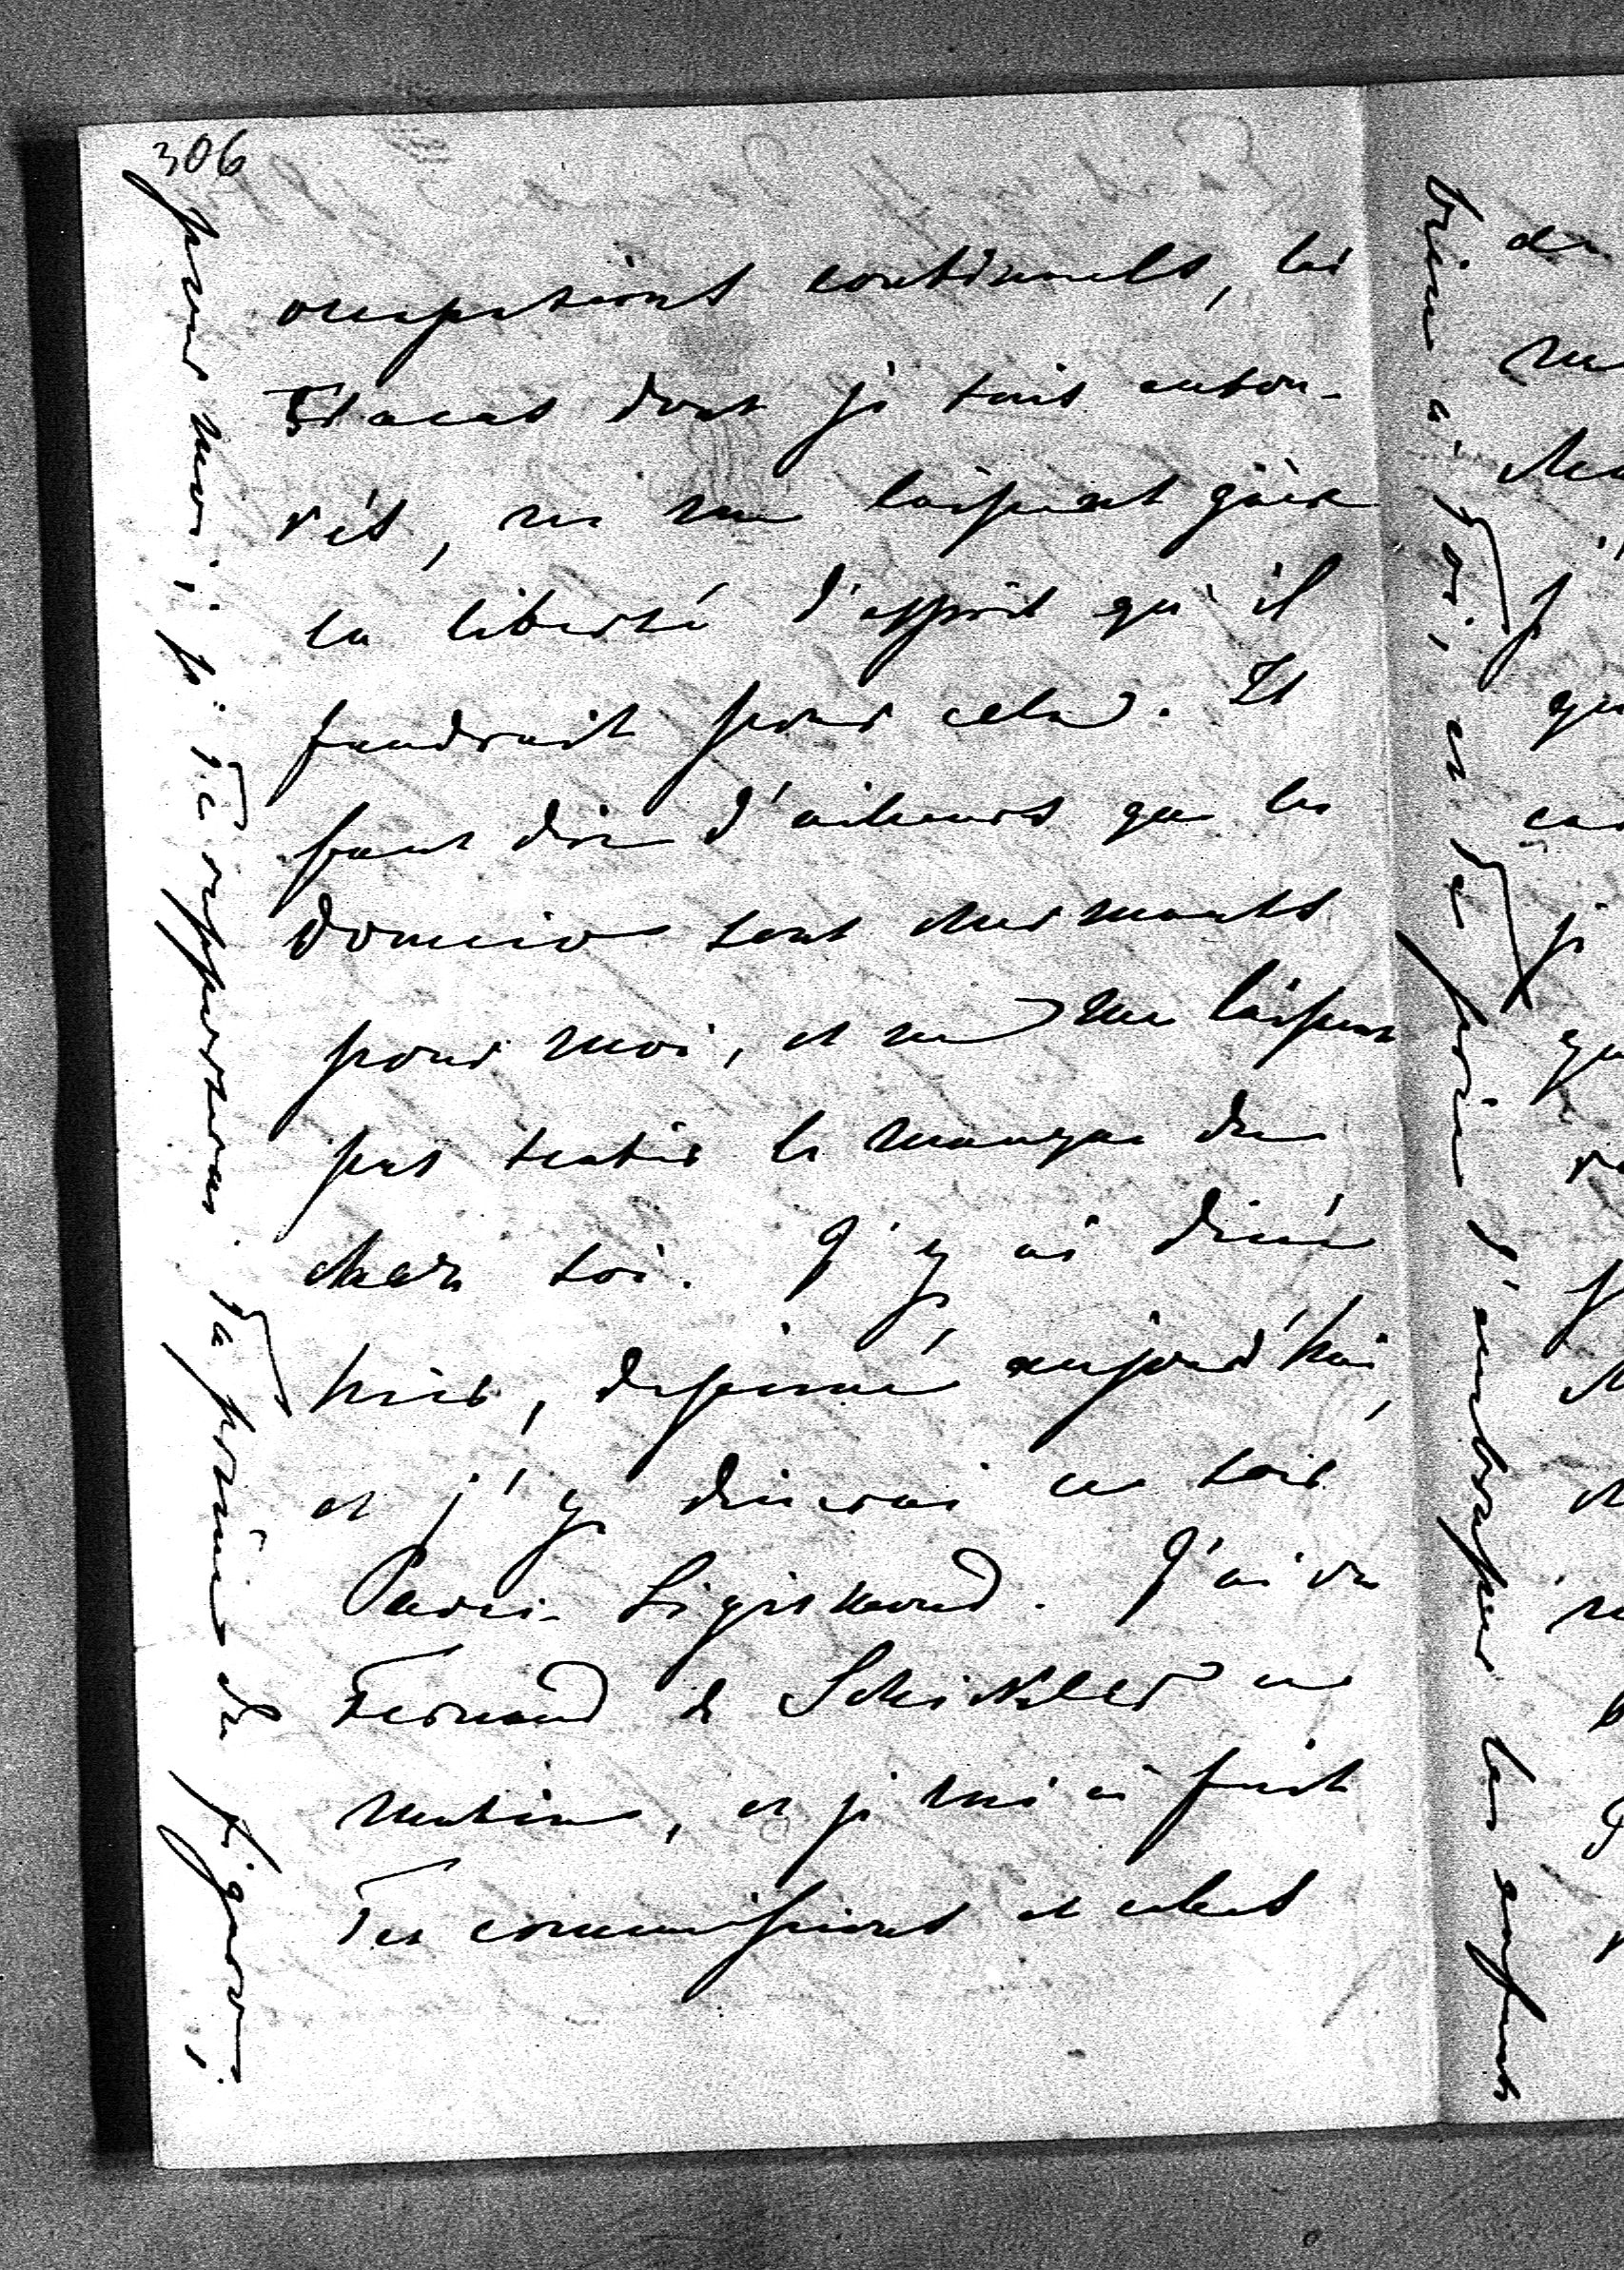 306
occupations continuels, les
Tracas dont je suis entou-
rés, ne me laissent guère
la liberté d'esprit qu'il
faudrait pour cela. Il
faut dire d'ailleurs que les
sont charmants
pour moi, et ne me laissent
pas sentir le manque de
chez soi. J'y ai dîné
hier, dejeuné aujourd'hui,
et j'y dinerai ce soir
Sigismond. J'ai vu
Fernand de Schickler ce
matin, et je lui ai fait
Tes commissions et celles
pour moi; je te rapporterai ta prime du figaro;
bien à Toi, et Te prie d'embrasser les enfants